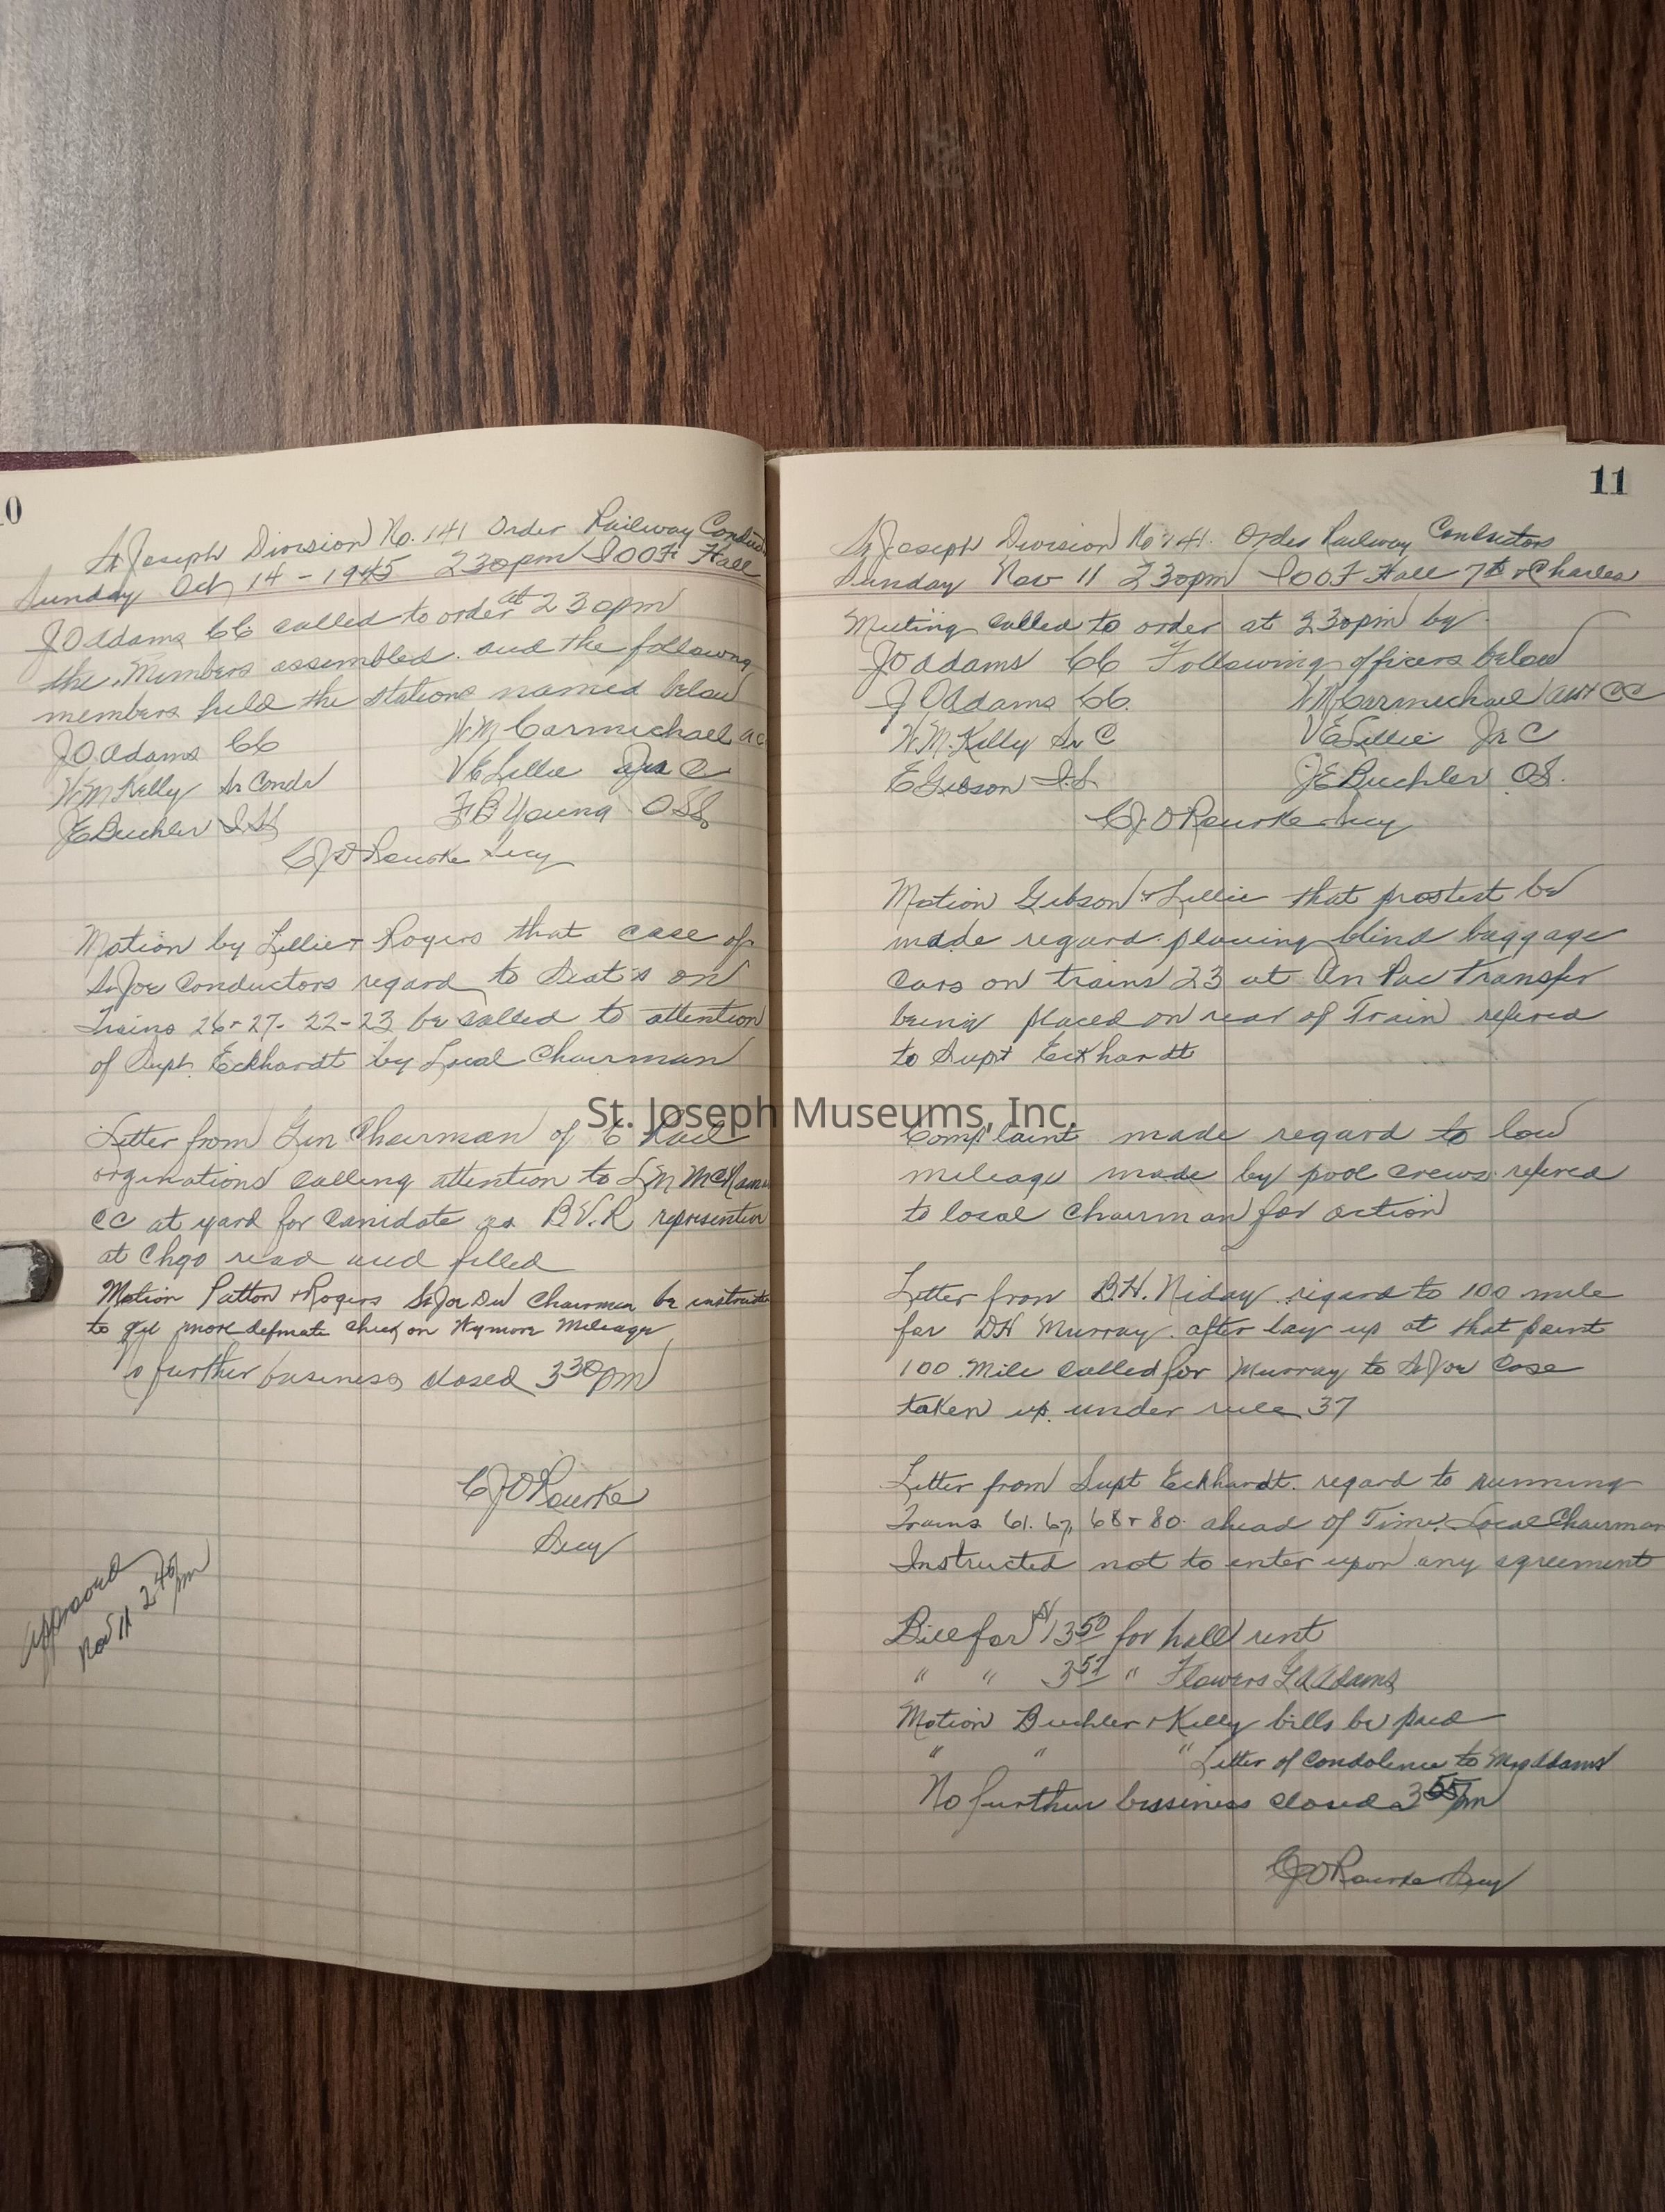 10
St Joseph Division No. 141 Order Railway Conduc
Sunday Oct 14 - 1945 230pm IOOF Hall
JO Adams CC called to order at 230pm
the Members assembled. and the following
members held the stations named below
JO Adams CC WM Carmichael ac
WM Kelly Sr Condr VE Lillie Jr C
JE Buchler IS FB Young OSS
CJ O Rourke Secy
Motion by Lillie + Rogers that case of
St Joe Conductors regard to Seats on
Trains 26 + 27 - 22 - 23 be called to attention
of Supt. Eckhardt by Local Chairman
Letter from Gen Chairman of 6 Rail
orginations calling attention to LM McNam
CC at yard for Canidate as B.V.R representive
at Chgo read and filled
Motion Patton + Rogers St Joe Div Chairman be instructe
to get more definate check on Wymore Mileage
No further business closed 330pm
CJO Rourke
Secy
Approved
Nov 11 245 pm
11
St Joseph Division No 141. Order Railway Conductors
Sunday Nov 11 230pm IOOF Hall 7th + Charles
Meeting called to order at 230pm by
JO Adams CC Following officers below
JO Adams CC. WM Carmichael asst CC
W.M. Kelly Sr C VE Lillie Jr C
E Gibson I.S. JE Buchler OS.
CJ O Rourke Secy
Motion Gibson + Lillie that prostest be
made regard placing blind baggage
cars on trains 23 at Un Pac Transfer
being placed on rear of Train refered
to Supt Eckhardt
Complaint made regard to low
mileage made by pool crews refered
to local chairman for action
Letter from B.H. Niday regard to 100 mile
for DH Murray after lay up at that point
100 Mile called for Murray to St Joe Case
taken up under rule 37
Letter from Supt Eckhardt. regard to running
Trains 61. 67, 68 + 80. ahead of Time. Local Chairman
Instructed not to enter upon any agreement
Bill for $1350 for hall rent
" " 357 " Flowers Adams
Motion Buchler + Kelly bills be paid
" " " Letter of Condolence to Mrs Adams
No further bussiness closed 355pm
CJO Rourke Secy
St. Joseph Museums, Inc.